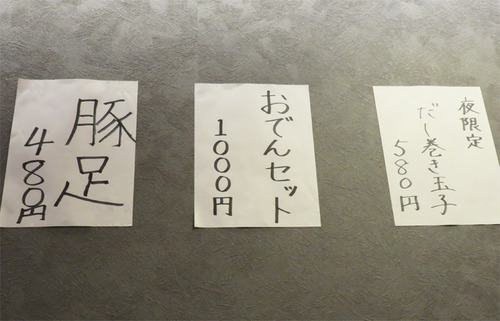 豚足
480円
おでんセット
1000円
夜限定
だし巻き玉子
580円